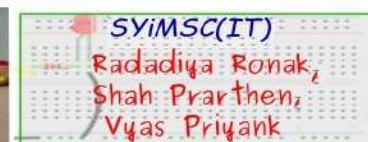 SYiMSC(IT)
Radadiya Ronak,
Shah Prarthen,
Vyas Priyank